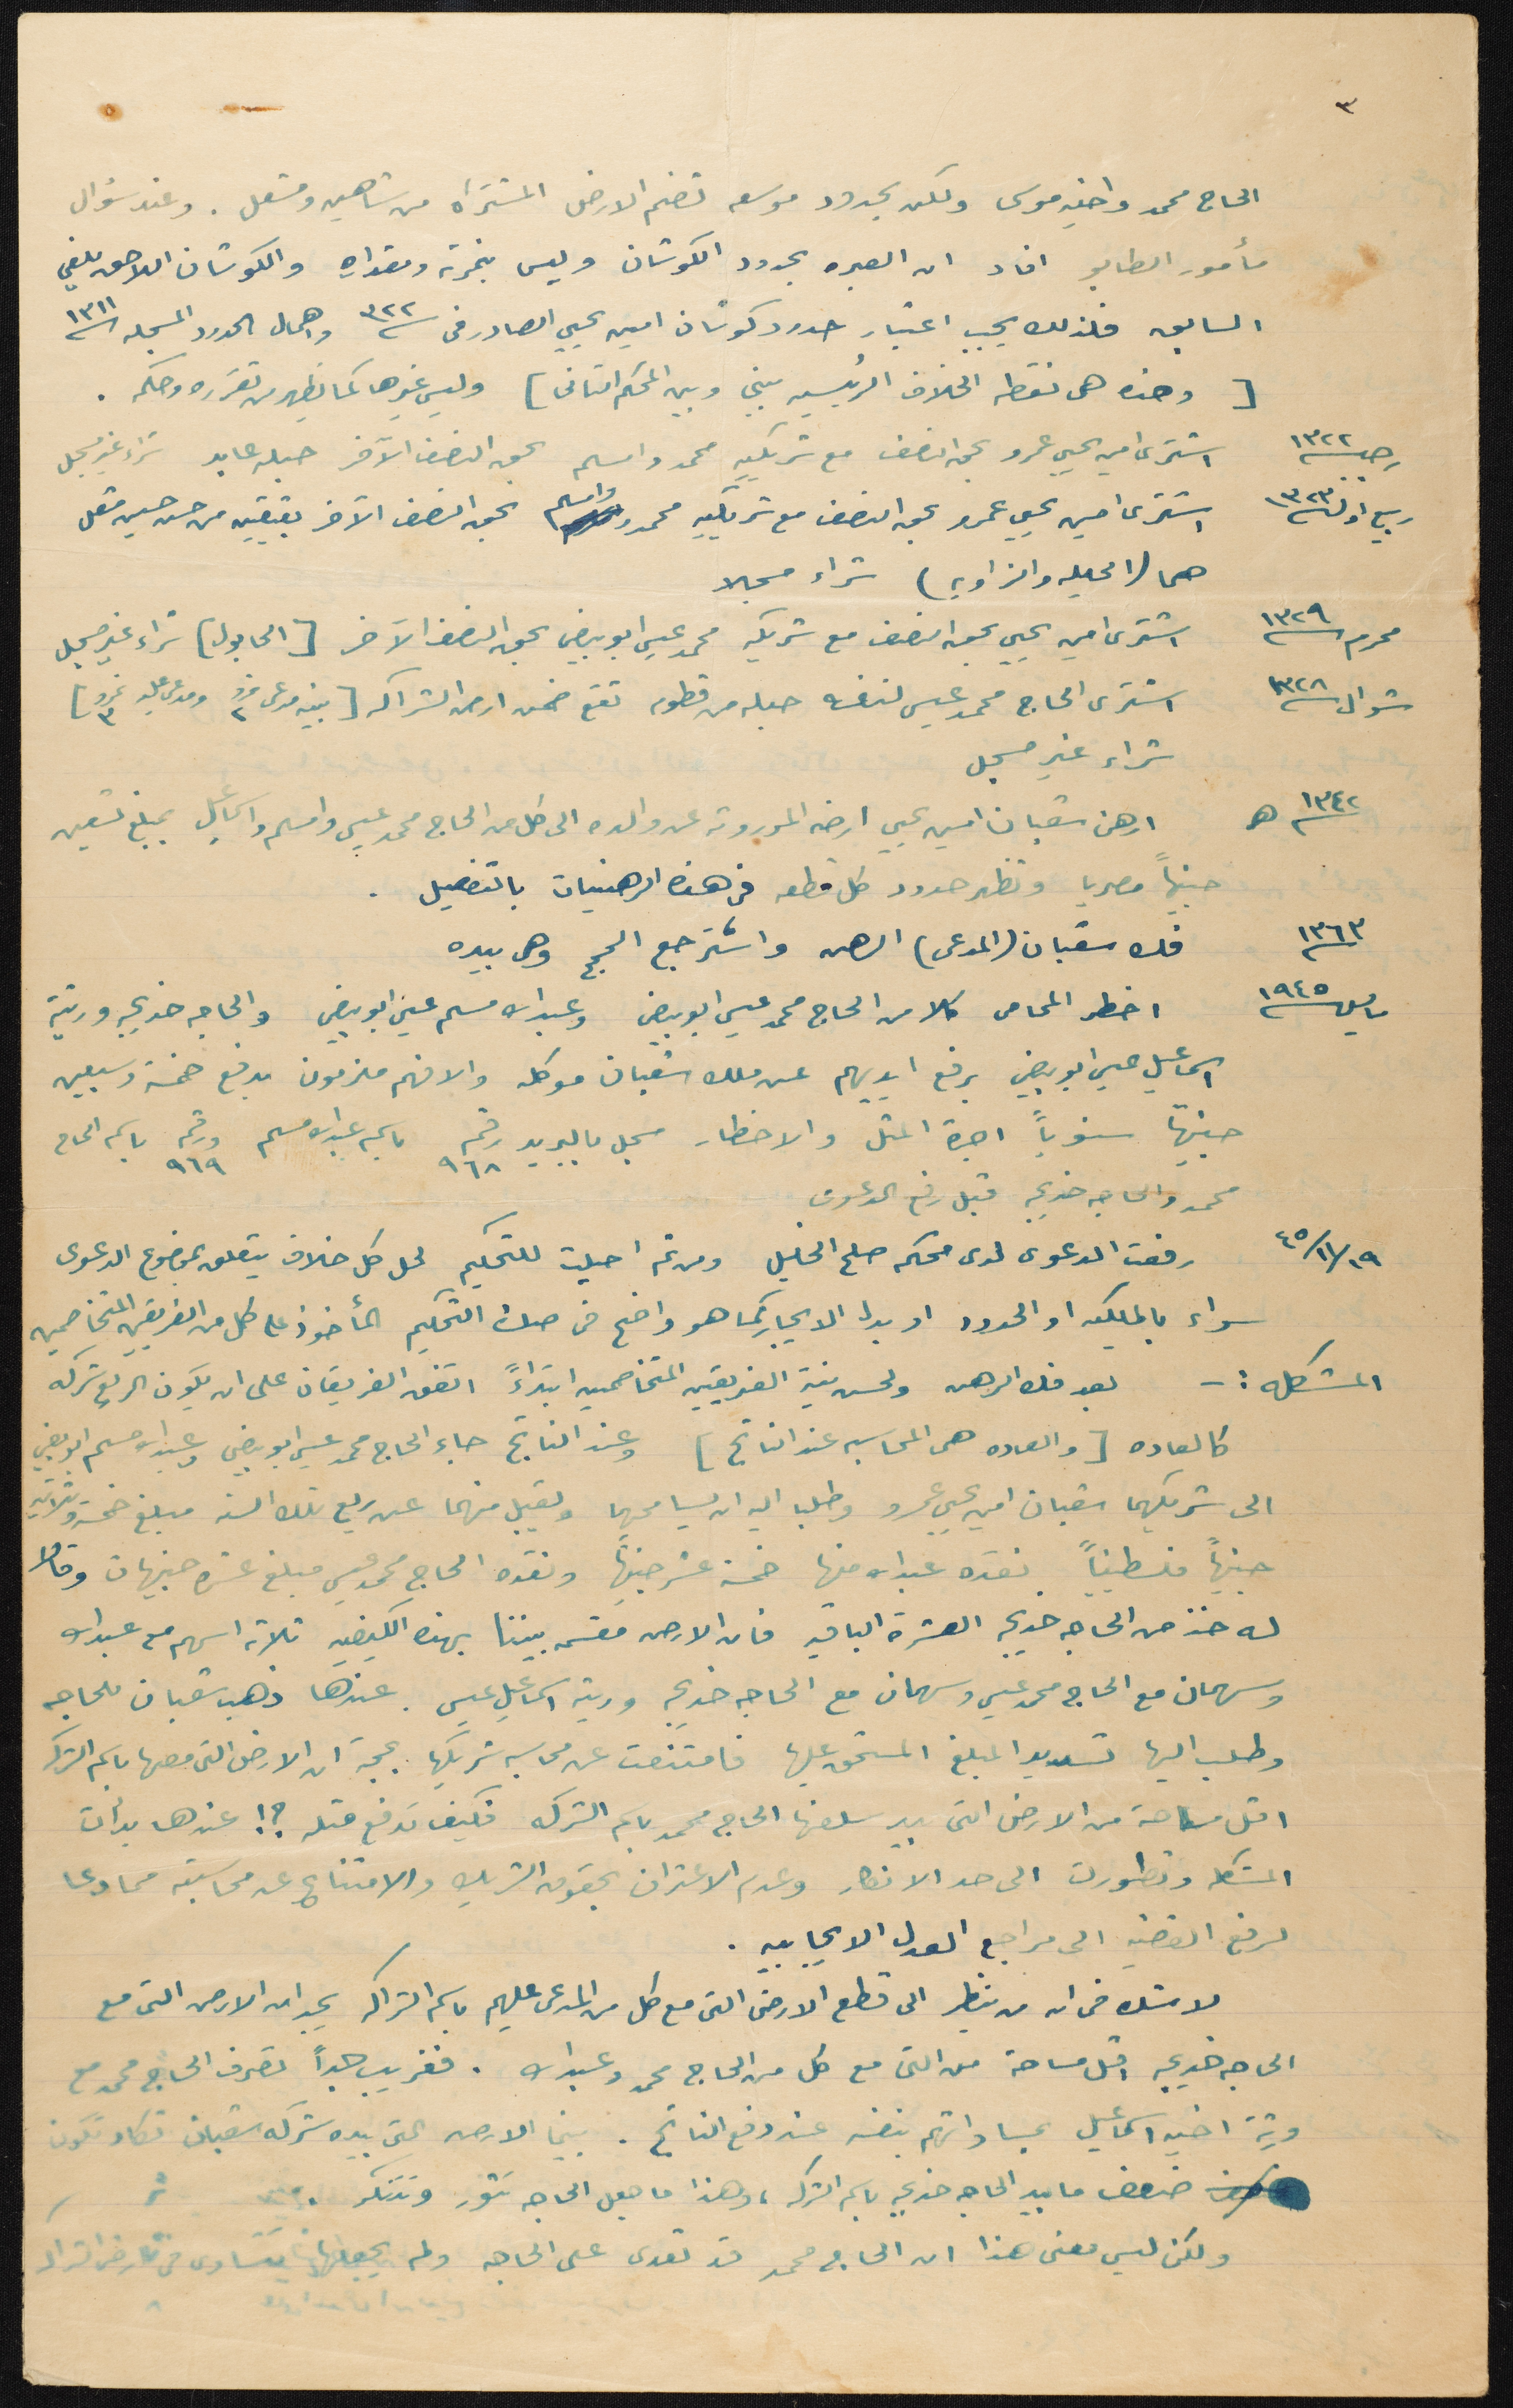 ٣
الحاج محمد واخيه موسى ولكن بحدود موسعه تضم الارض المشتراه من شاهين ومشعل . وعند سؤال
مأمور الطابو افاد ان العبره بحدود الكوشان وليس بنمرته ومقداره والكوشان اللاحق يلغي
السابق فلذلك يجب اعتبار حدود كوشان امين يحيي الصادر في ٣٢٢ واهمال الحدود المسجله ١٣١١
[ وهذه هي نقطه الخلاف الرئيسيه بيني وبين المحكم الثاني ] وليس غيرها كما يظهر من تقريره وحكمه .
رجب ١٣٢٢ اشترى امين يحيي عمرو بحق النصف مع شريكيه محمد وامسلم بحق النصف الآخر حبله عابد شراء غير مسجل
ربيع اول ١٣٢٣ اشترى امين يحيي عمرو بحق النصف مع شريكيه محمد وامسلم بحق النصف الآخر بقيتين من حسن حسين مشعل
هما (الحبله والزاويه) شراء مسجلا
محرم ١٣٢٩ اشترى امين يحيي بحق النصف مع شريكه محمد عيسى ابو بيض بحق النصف الآخر [ الحابول ] شراء غير مسجل
شوال ١٣٢٨ اشترى الحاج محمد عيسى لنفسه حبله من قطوم تقع ضمن ارض الشراكه [ بينه مدعي نمرو ٢ ومدعى عليه نمرو ٣ ]
شراء غير مسجل
١٣٤٢ هـ ارهن شعبان امين يحيي ارضه الموروثه عن والده الى كل من الحاج محمد عيسى وامسلم واسماعيل بمبلغ تسعين
جنيهاً مصريا وتظهر حدود كل قطعه في هذه الرهنيات بالتفصيل .
١٣٦٣ فك شعبان (المدعي) الرهن واسترجع الحجج وهي بيده
مايس ١٩٤٥ اخطر المحامى كلا من الحاج محمد عيسى ابو بيض وعبدالله مسلم عيسى ابو بيض والحاجه خديجه وريثة
اسماعيل عيسى ابو بيض برفع ايديهم عن ملك شعبان موكله والا فهم ملزمون بدفع خمسة وسبعين
جنيهاً سنوياً اجرة المثل والاخطار مسجل بالبريد رقم ٩٦٨ باسم عبدالله مسلم ورقم ٩٦٩ باسم الحاج
محمد والحاجه خديجه قبل رفع الدعوى
١٩/١١/٤٥ رفعت الدعوى لدى محكمه صلح الخليل ومن ثم احيلت للتحكيم لحل كل خلاف يتعلق بموضوع الدعوى
سواء بالملكيه او الحدود او بدل الايجار كما هو واضح في صك التحكيم المأخوذ على كل من الفريقين المتخاصمين
المشكله :- بعد فك الرهن ولحسن نية الفريقين المتخاصمين ابتداءً اتفق الفريقان على ان يكون الريع شركه
كالعاده [ والعاده هي المحاسبه عند الناتج ] وعند الناتج جاء الحاج محمد عيسى ابو بيض وعبدالله مسلم ابو بيض
الى شريكهما شعبان امين يحيى عمرو وطلبا اليه ان يسامحهما ويقبل منهما عن ريع تلك السنه مبلغ خمسة وثلاثين
جنيهاً فلسطينياً نقده عبدالله منها خمسة عشر جنيهاً ونقده الحاج محمد عيسى مبلغ عشرة جنيهات وقالا
له خذ من الحاجه خديجه العشرة الباقيه فان الارض مقسمه بيننا بهذه الكيفيه ثلاثة اسهم مع عبدالله
وسهمان مع الحاج محمد عيسى وسهمان مع الحاجه خديجه وريثة اسماعيل عيسى . عندها ذهب شعبان للحاجه
وطلب اليها تسديد المبلغ المستحق عليها فامتنعت عن محاسبه شريكها بحجة ان الارض التي معها باسم الشركه
اقل مساحة من الارض التي بيد سلفها الحاج محمد باسم الشركه فكيف تدفع مثله ؟! عندها بدأت
المشكله وتطورت الى حد الانكار وعدم الاعتراف بحقوق الشريك والامتناع عن محاسبته مما دعا
لرفع القضيه الى مراجع العدل الايجابيه .
لا شك في ان من ينظر الى قطع الارض التي مع كل من المدعى عليهم باسم الشراكه يجد ان الارض التي مع
الحاجه خديجه اقل مساحة من التي مع كل من الحاج محمد وعبدالله . فغريب جداً تصرف الحاج محمد مع
ورثة اخيه اسماعيل بمساواتهم بنفسه عند دفع الناتج . بينما الارض التي بيده شركه شعبان تكاد تكون
ضعف ما بيد الحاجه خديجه باسم الشركه ، وهذا ما جعل الحاجه تثور وتنكر .
ولكن ليس معنى هذا ان الحاج محمد قد تعدى على الحاجه ولم يجعلها تتساوى في ارض الشراكه